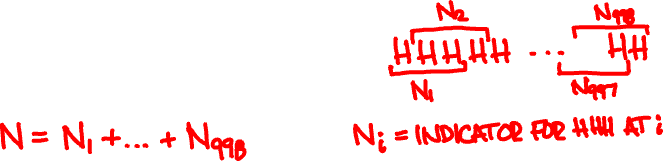 N₂ N₉₉₈
HHHHH ... HH
N₁ N₉₉₇
N = N₁ + ... + N₉₉₈
Nᵢ = INDICATOR FOR HHH AT i